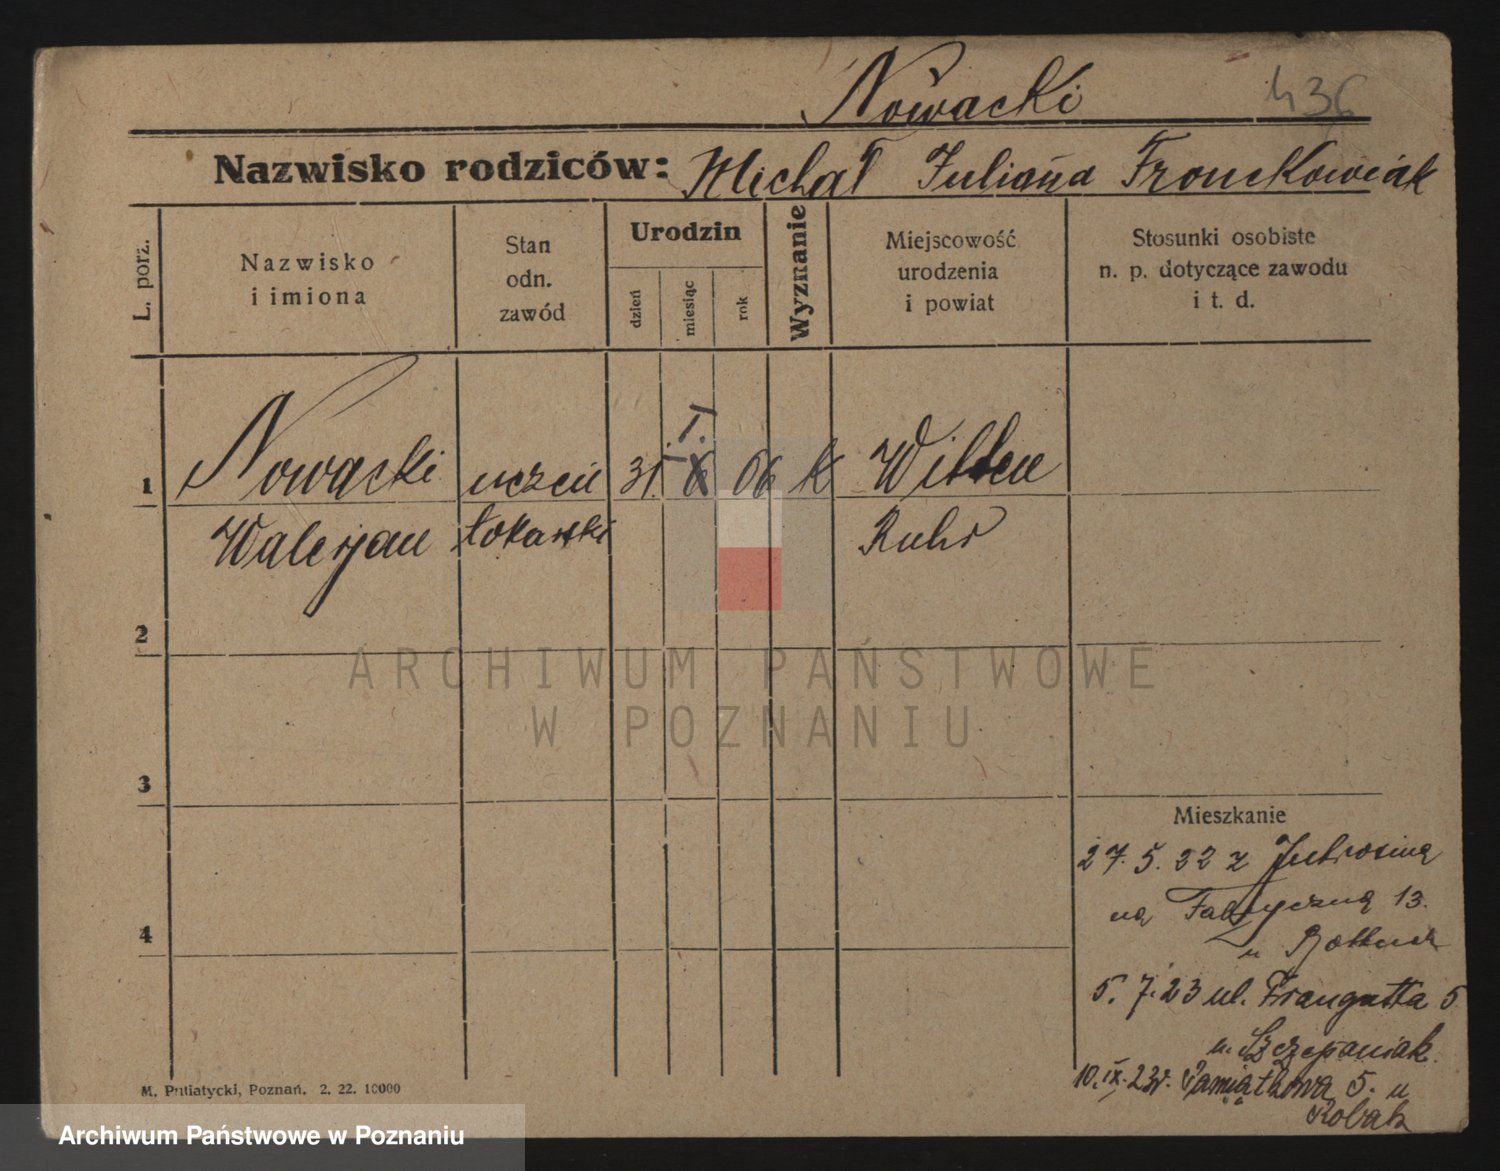 Nowacki 436
Nazwisko rodziców: Michał Juliana Fronckowiak
L. porz.
Nazwisko
i imiona
Stan
odn.
zawód
Urodzin
dzień
miesiąc
rok
Wyznanie
Miejscowość
urodzenia
i powiat
Stosunki osobiste
n. p. dotyczące zawodu
i t. d.
I.
1 Nowacki uczeń 31. 6 06 K Witten
Waleryan tokarski Ruhr
2
ARCHIWUM PAŃSTWOWE
W POZNANIU
3
Mieszkanie
27. 5. 22 z Jutrosina
na Fabryczną 13.
4
u
5. 7. 23 ul. Traugutta 5
u. Szczepaniak
10. IX. 23r. Pamiątkowa 5. u
Robak
M. Putiatycki, Poznań. 2. 22. 10000
Archiwum Państwowe w Poznaniu